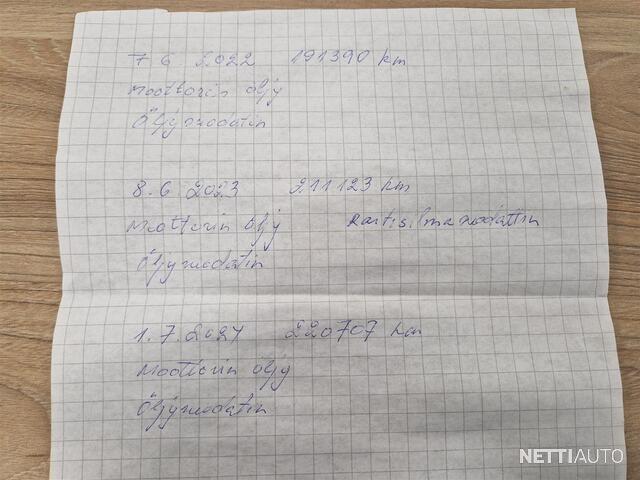 7 6 2022 191390 km
Moottorin öljy
Öljynsodatin
8.6 2023 211123 km
Moottorin öljy Raitisilmansodattin
Öljynsodatin
1.7.2024 220707 km
Moottorin öljy
Öljynsodatin
NETTIAUTO